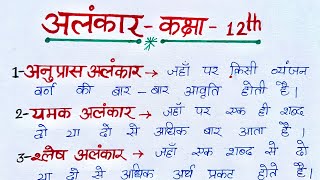 अलंकार - कक्षा - 12th
1-अनुप्रास अलंकार → जहाँ पर किसी व्यंजन
वर्ण की बार-बार आवृति होती है।
2-यमक अलंकार → जहाँ पर एक ही शब्द
दो या दो से अधिक बार आता है।
3-श्लेष अलंकार → जहाँ एक शब्द से दो
या दो से अधिक अर्थ प्रकट होते हैं।